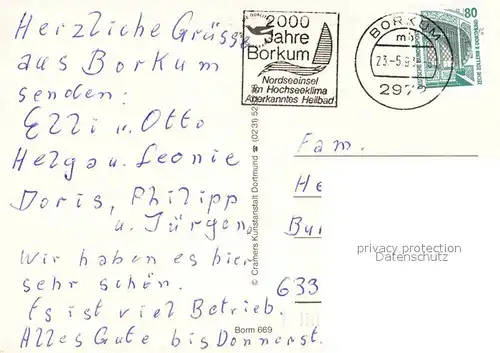 Herzliche Grüsse
aus Borkum
senden:
Elli u. Otto
Helga u. Leonie
Doris, Philipp
u. Jürgen
Wir haben es hier
sehr schön.
Es ist viel Betrieb.
Alles Gute bis Donnerst.
2000
Jahre
Borkum
Nordseeinsel
im Hochseeklima
Anerkanntes Heilbad
BORKUM
23-5.
297
80
DEUTSCHE BUNDESPOST
ZECHE ZOLLERN II DORTMUND
© Cramers Kunstanstalt Dortmund ☎ (0231) 52
Borm 669
Fam.
He
Bu
633
privacy protection
Datenschutz